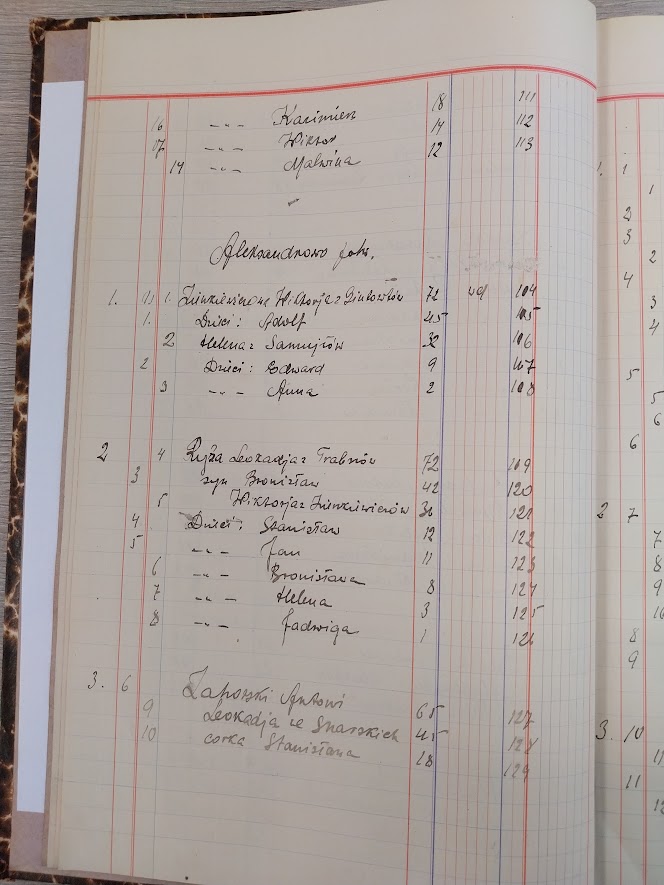 16 -"- Kazimierz 18 111
17 -"- Wiktor 14 112
14 -"- Malwina 12 113
Aleksandrowo folw.
1. 1. Wiktorja z 72 wd 104
1. Dzieci: Adolf 45 105
2 Helena z Samujłów 32 106
2 Dzieci: Edward 9 107
3 -"- Anna 2 108
2 4 Ryża Leokadja z Trabszów 72 109
3 syn Bronisław 42 120
5 Wiktorja z Zienkiewiczów 121
4 Dzieci: Stanisław 12 122
5 -"- Jan 11 123
6 -"- Bronisława 8 124
7 -"- Helena 3 125
8 -"- Jadwiga 1 126
3. 6 Antoni 65 127
9 Leokadja ze Snarskich 45 128
10 córka Stanisława 18 129
1. 1
1
2
3
2
4
3
4
5
5
6
6
2 7
7
8
9
8
9
3. 10
11
11